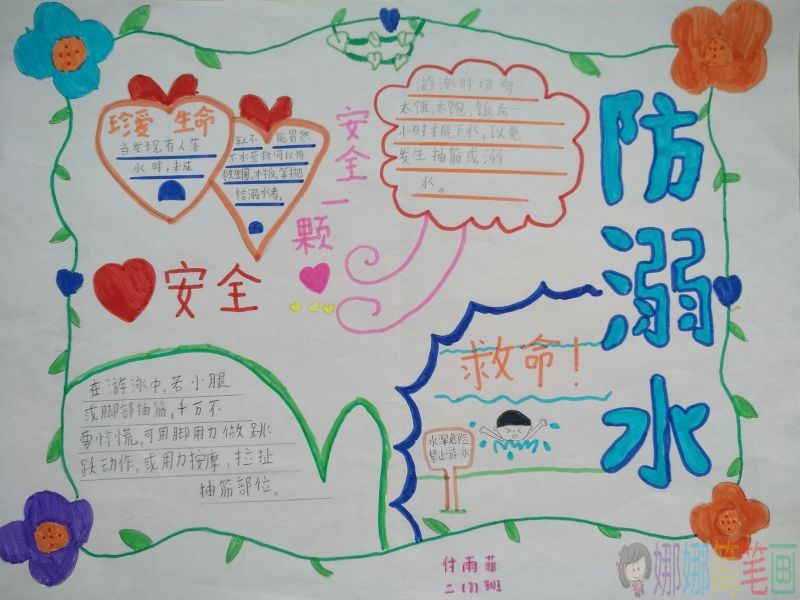 防溺水
珍爱 生命
当发现有人落
水时,未成
年人不 能冒然
下水营救可以将
救生圈,木板,等抛
给溺水者。
安全一颗
游泳时切勿
太饿,太饱,饭后一
小时才能下水,以免
发生抽筋或溺
水。
安全
救命!
水深危险
禁止游泳
在游泳中,若小腿
或脚部抽筋,千万不
要惊慌,可用脚用力做跳
跌动作,或用力按摩,拉扯
抽筋部位。
付雨菲
二(3)班
娜娜简笔画